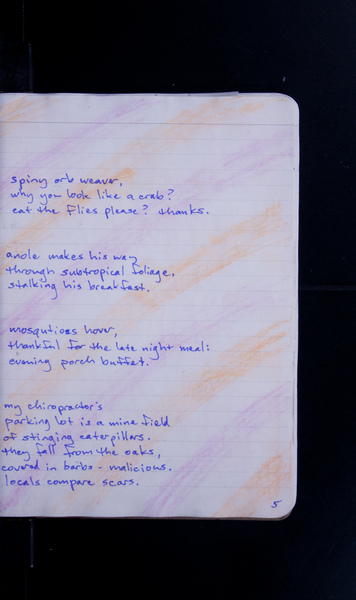 spiny orb weaver,
why you look like a crab?
eat the flies please? thanks.
anole makes his way
through subtropical foliage,
stalking his breakfast.
mosqutioes hover,
thankful for the late night meal:
evening porch buffet.
my chiropractor's
parking lot is a mine field
of stinging caterpillars.
they fall from the oaks,
covered in barbs - malicious.
locals compare scars.
5